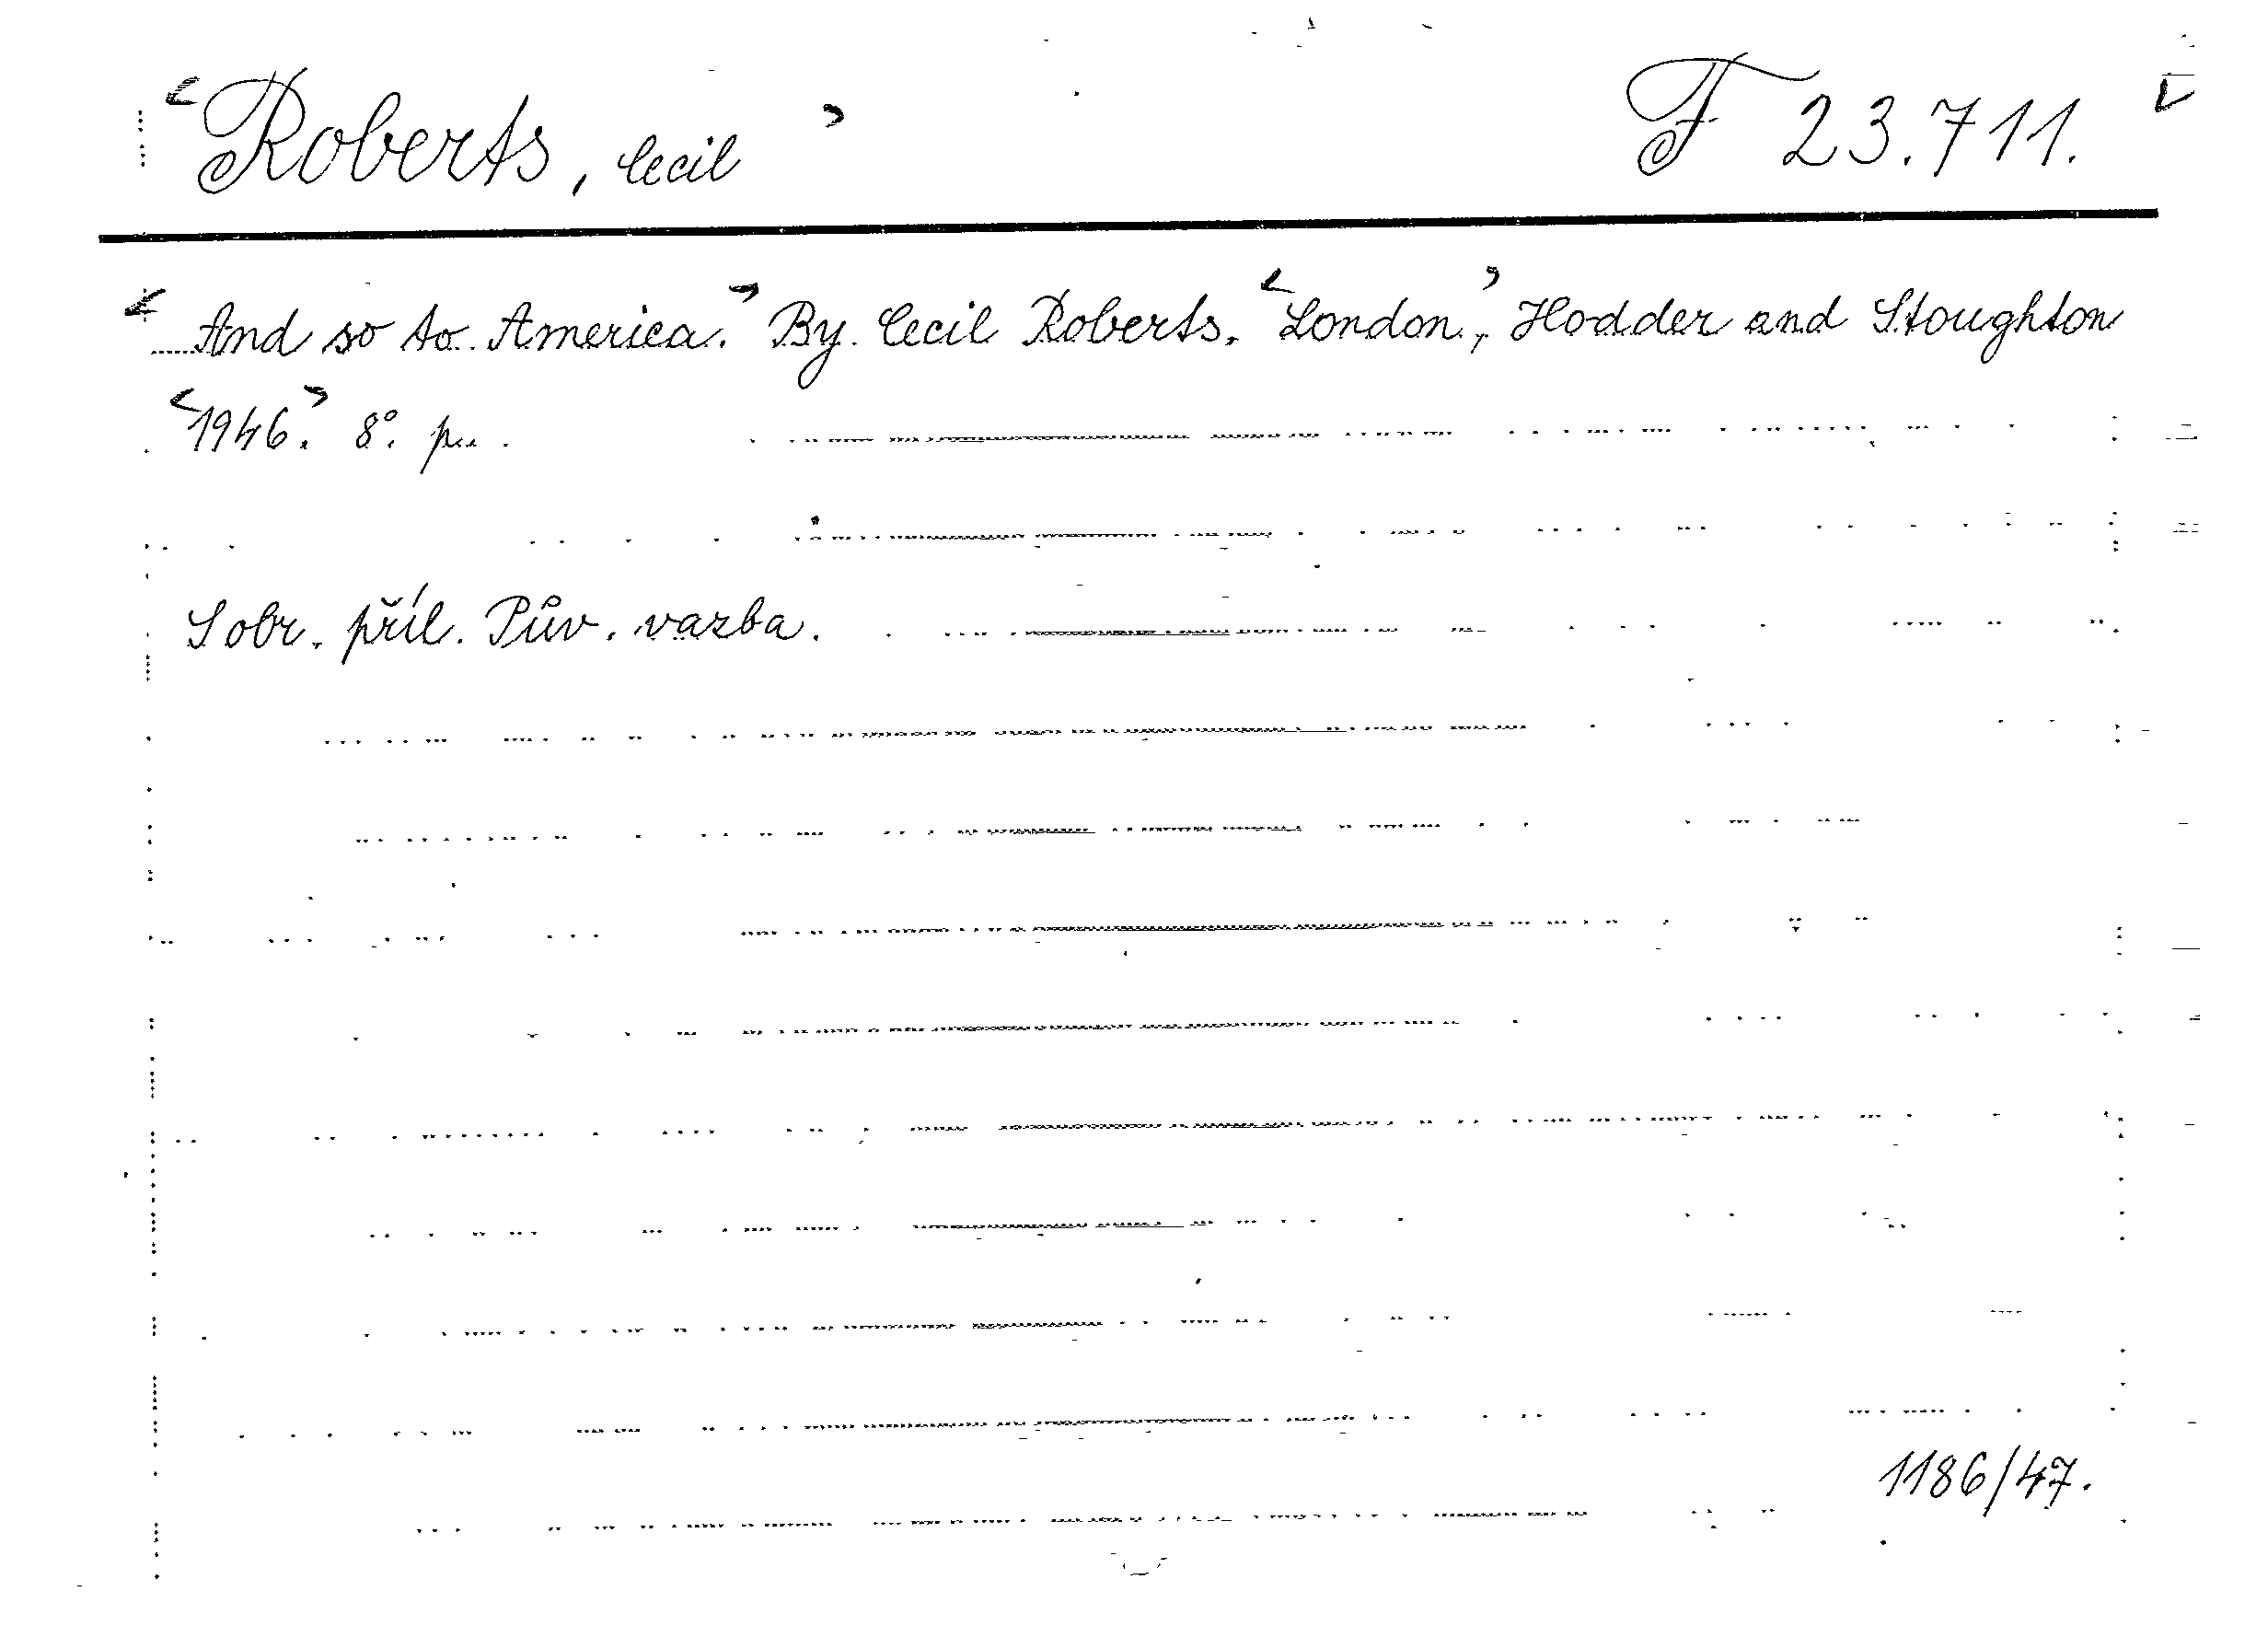 <Roberts, Cecil> F 23.711.
<And so to America.> By Cecil Roberts. <London,> Hodder and Stoughton
<1946.> 8°. p...
S obr. příl. Pův. vazba.
1186/47.